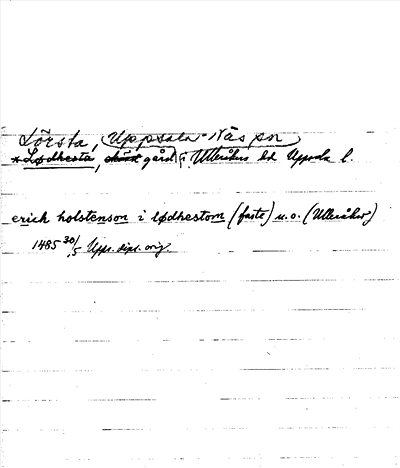 Lörsta, Uppsala-Näs sn
*Lødhesta, gård i Ulleråkers hd Uppsala l.
erick holstenson i lødhestom (faste) u.o. (Ulleråker)
1485 30/5 Upps. dipl. orig.